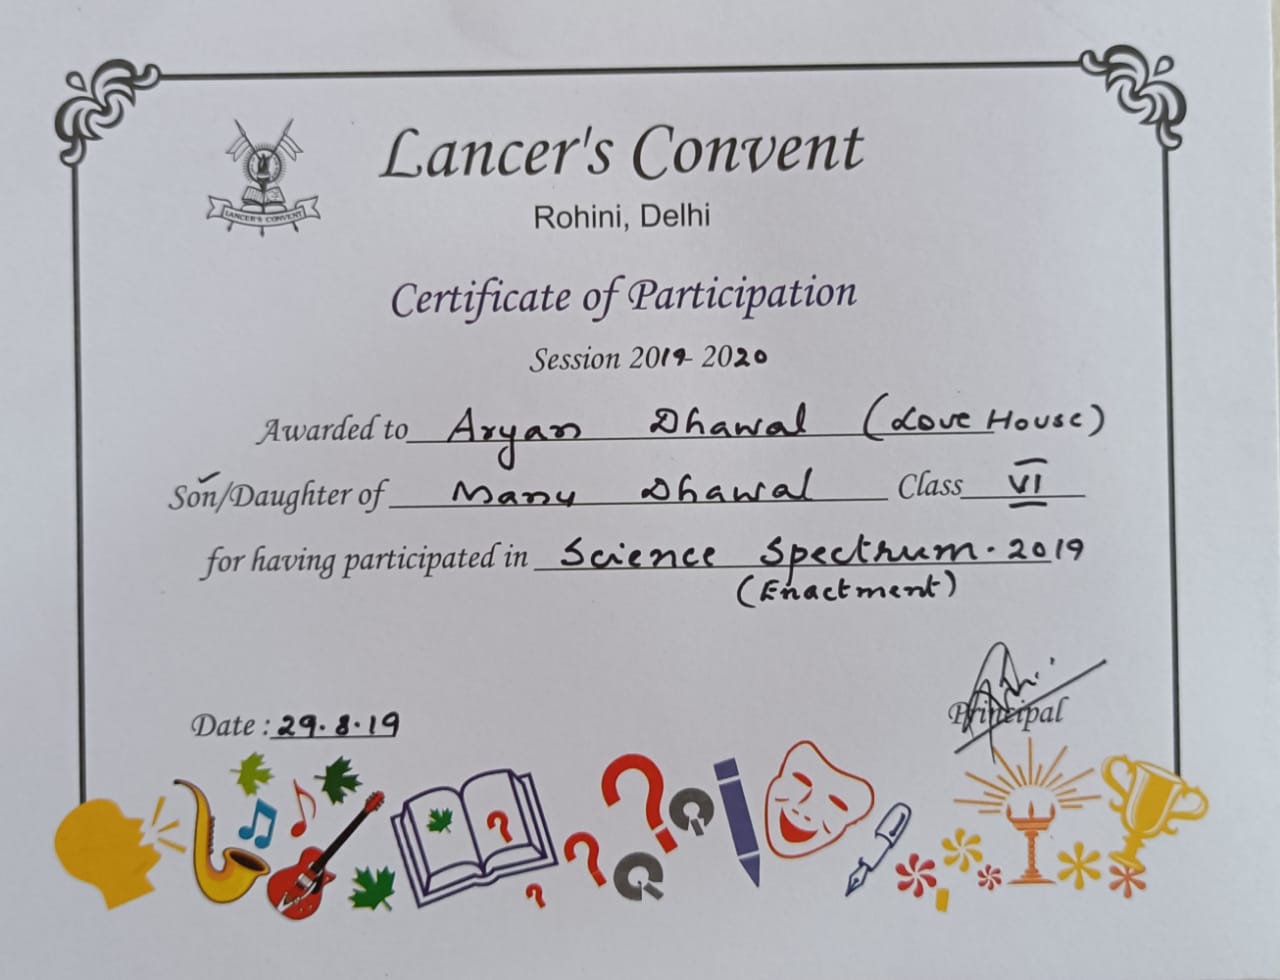 LANCER'S CONVENT
Lancer's Convent
Rohini, Delhi
Certificate of Participation
Session 2019-2020
Awarded to Aryan Dhawal (Love House)
Son/Daughter of Manu Dhawal Class VI
for having participated in Science Spectrum. 2019
(Enactment)
Date : 29.8.19
Principal